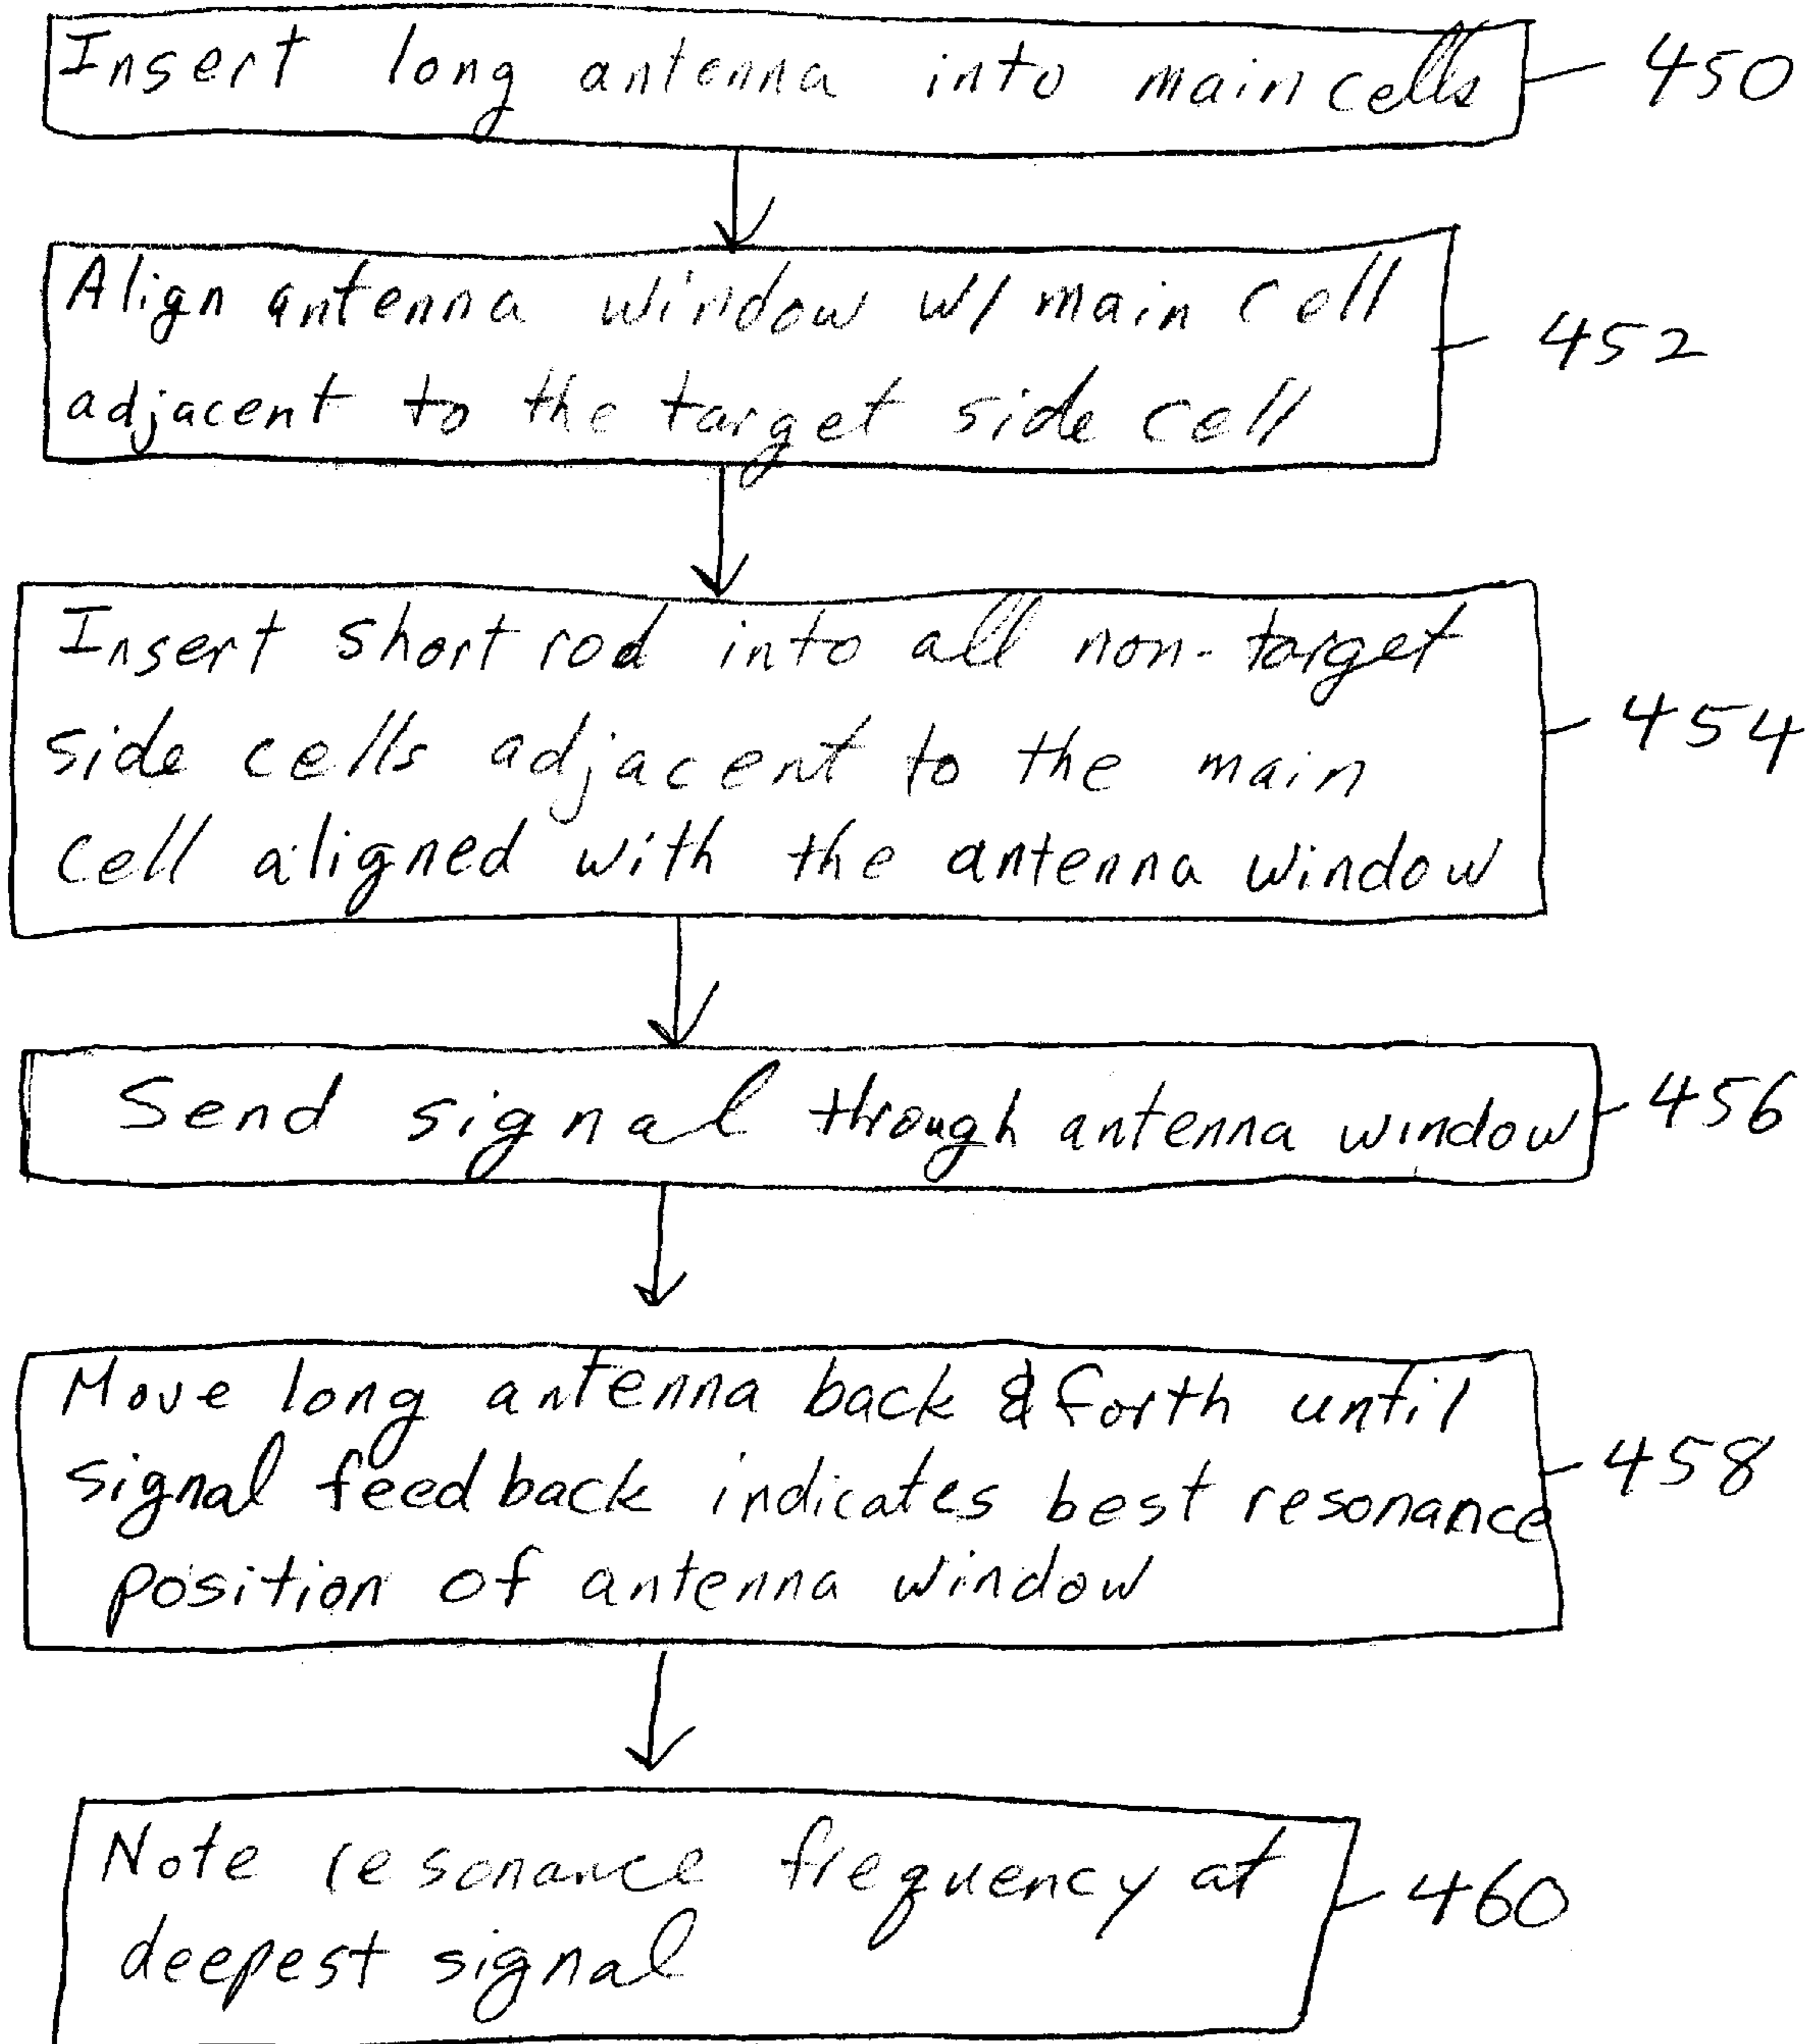 Insert long antenna into main cells 450
Align antenna window w/ main cell
adjacent to the target side cell
452
Insert short rod into all non-target
side cells adjacent to the main
cell aligned with the antenna window
454
Send signal through antenna window 456
Move long antenna back & forth until
signal feedback indicates best resonance
position of antenna window
458
Note resonance frequency at
deepest signal
460